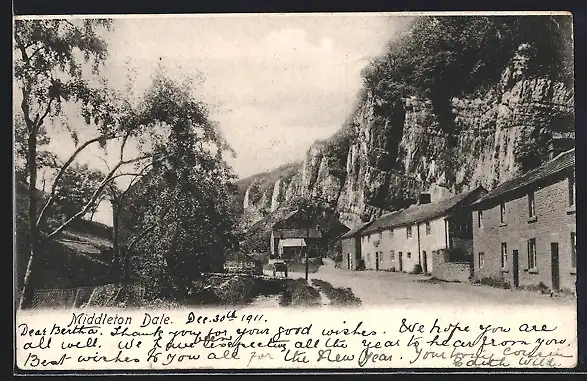 Middleton Dale. Dec. 30th 1911.
Dear Bertha. Thank you for your good wishes. We hope you are
all well. We have been expecting all the year to hear from you.
Best wishes to you all for the New Year. Your loving Cousin
Edith